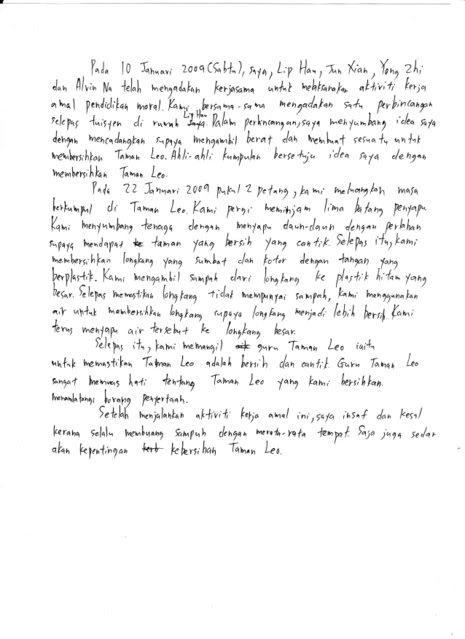 Pada 10 Januari 2009 (Sabtu), saya, Lip Hau, Jun Xian, Yong Zhi
dan Alvin Na telah mengadakan kerjasama untuk melaksanakan aktiviti kerja
amal pendidikan moral. Kami bersama-sama mengadakan satu perbincangan
selepas tuisyen di rumah Lip Hau. Dalam perbincangan, saya menyumbang idea saya
dengan mencadangkan supaya mengambil berat dan membuat sesuatu untuk
membersihkan Taman Leo. Ahli-ahli kumpulan bersetuju idea saya dengan
membersihkan Taman Leo.
Pada 22 Januari 2009 pukul 2 petang, kami meluangkan masa
berkumpul di Taman Leo. Kami pergi meminjam lima batang penyapu
Kami menyumbang tenaga dengan menyapu daun-daun dengan perlahan
supaya mendapat taman yang bersih yang cantik. Selepas itu, kami
membersihkan longkang yang sumbat dan kotor dengan tangan yang
berplastik. Kami mengambil sampah dari longkang ke plastik hitam yang
besar. Selepas memastikan longkang tidak mempunyai sampah, kami menggunakan
air untuk membersihkan longkang supaya longkang menjadi lebih bersih. Kami
terus menyapu air tersebut ke longkang besar.
Selepas itu, kami memangil guru Taman Leo iaitu
untuk memastikan Taman Leo adalah bersih dan cantik. Guru Taman Leo
sangat hati tentang Taman Leo yang kami bersihkan.
menandatangi borang penyertaan.
Setelah menjalankan aktiviti kerja amal ini, saya insaf dan kesal
kerana selalu membuang sampah dengan merata-rata tempat. Saya juga sedar
akan kepentingan kebersihan Taman Leo.